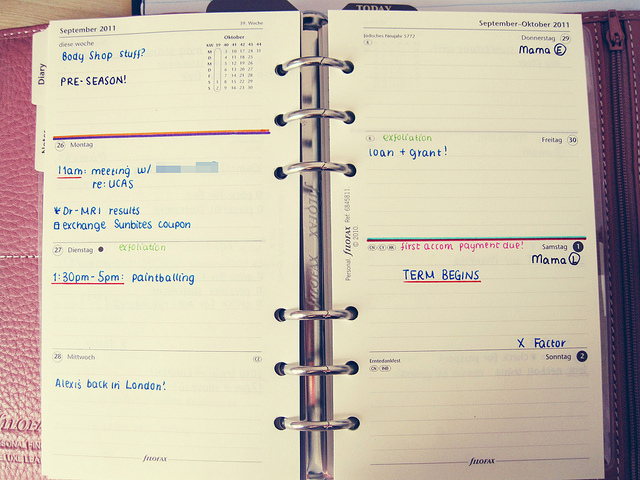 TODAY
Diary
Notes
September 2011
39. Woche
diese woche
Body Shop stuff?
PRE-SEASON!
Oktober
KW 39 40 41 42 43 44
M 3 10 17 24 31
D 4 11 18 25
M 5 12 19 26
D 6 13 20 27
F 7 14 21 28
S 1 8 15 22 29
S 2 9 16 23 30
26 Montag
11am: meeting w/
re: UCAS
Dr - MRI results
exchange Sunbites coupon
27 Dienstag
exfoliation
1:30pm - 5pm: paintballing
28 Mittwoch
Alexis back in London!
filofax
Personal filofax Ref 6845811
© 2010
September–Oktober 2011
Jüdisches Neujahr 5772
Donnerstag 29
Mama E
exfoliation
Freitag 30
loan + grant!
first accom payment due!
Samstag 1
Mama L
TERM BEGINS
X Factor
Erntedankfest
Sonntag 2
filofax